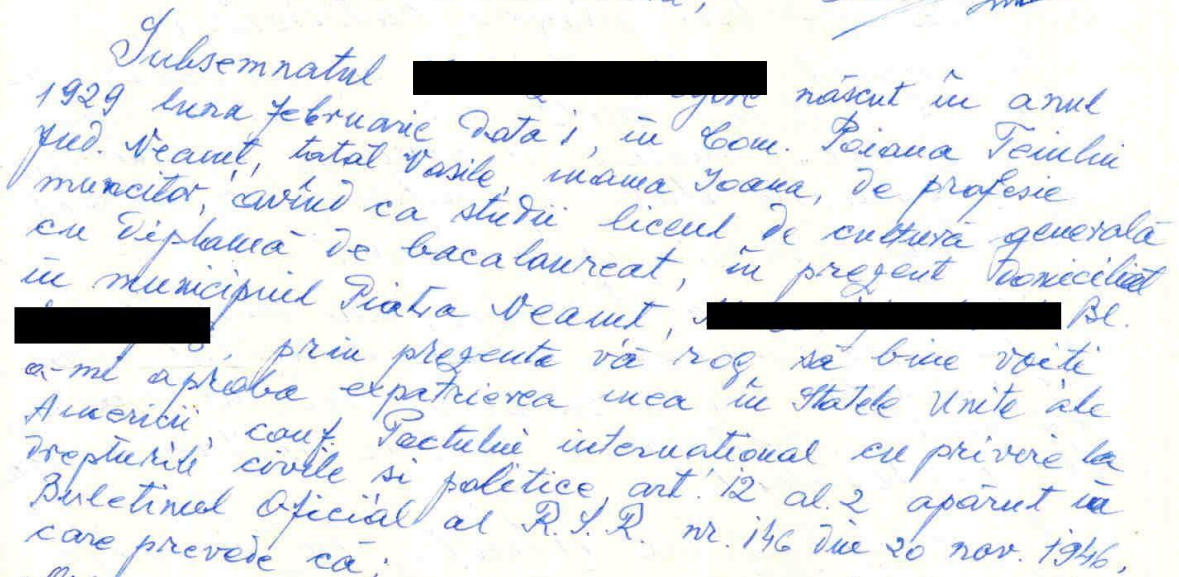 Subsemnatul născut în anul
1929 luna februarie data 1, în Com. Poiana Teiului
jud. Neamț, tatăl Vasile, mama Ioana, de profesie
muncitor, avînd ca studii liceul de cultură generală
cu diplomă de bacalaureat, în prezent domiciliat
în municipiul Piatra Neamț, Bl.
prin prezenta vă rog să bine voiți
a-mi aproba expatrierea mea în Statele Unite ale
Americii, conf. Pactului international cu privire la
drepturile civile si politice, art. 12 al. 2 apărut în
Buletinul Oficial al R.S.R. nr. 146 din 20 nov. 1946,
care prevede că: